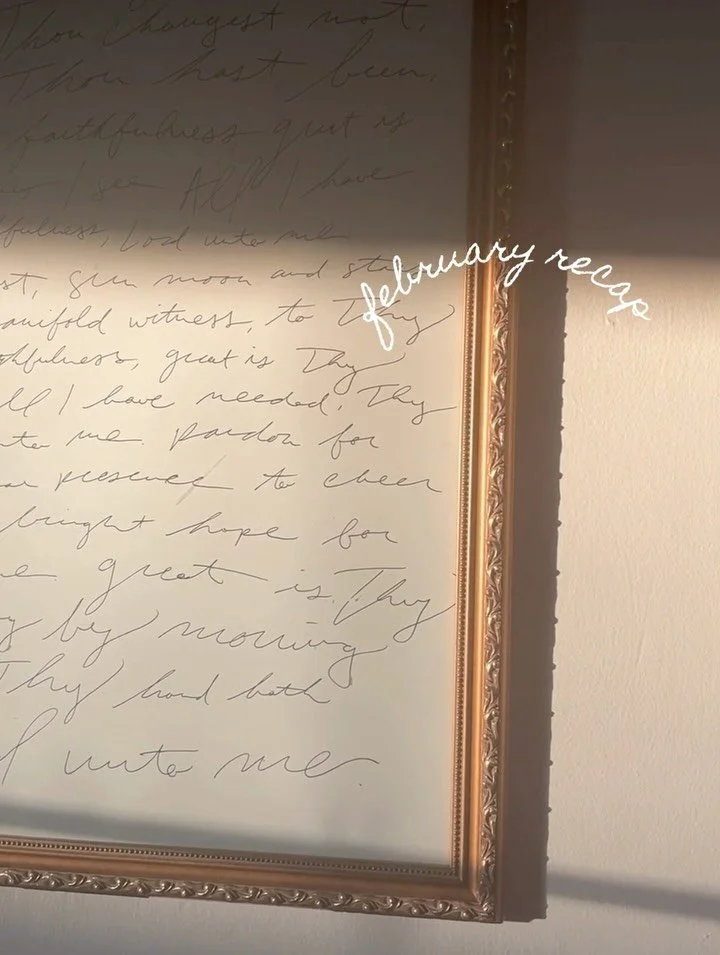 Thou changest not,
Thou hast been,
faithfulness great is
I see All I have
fulness, Lord unto me
st, sun moon and sta
anifold witness, to Thy
thfulness, great is Thy
ll I have needed, Thy
nto me. pardon for
presence to cheer
bright hope for
e great is Thy
y by morning
Thy hand hath
d unto me.
february recap